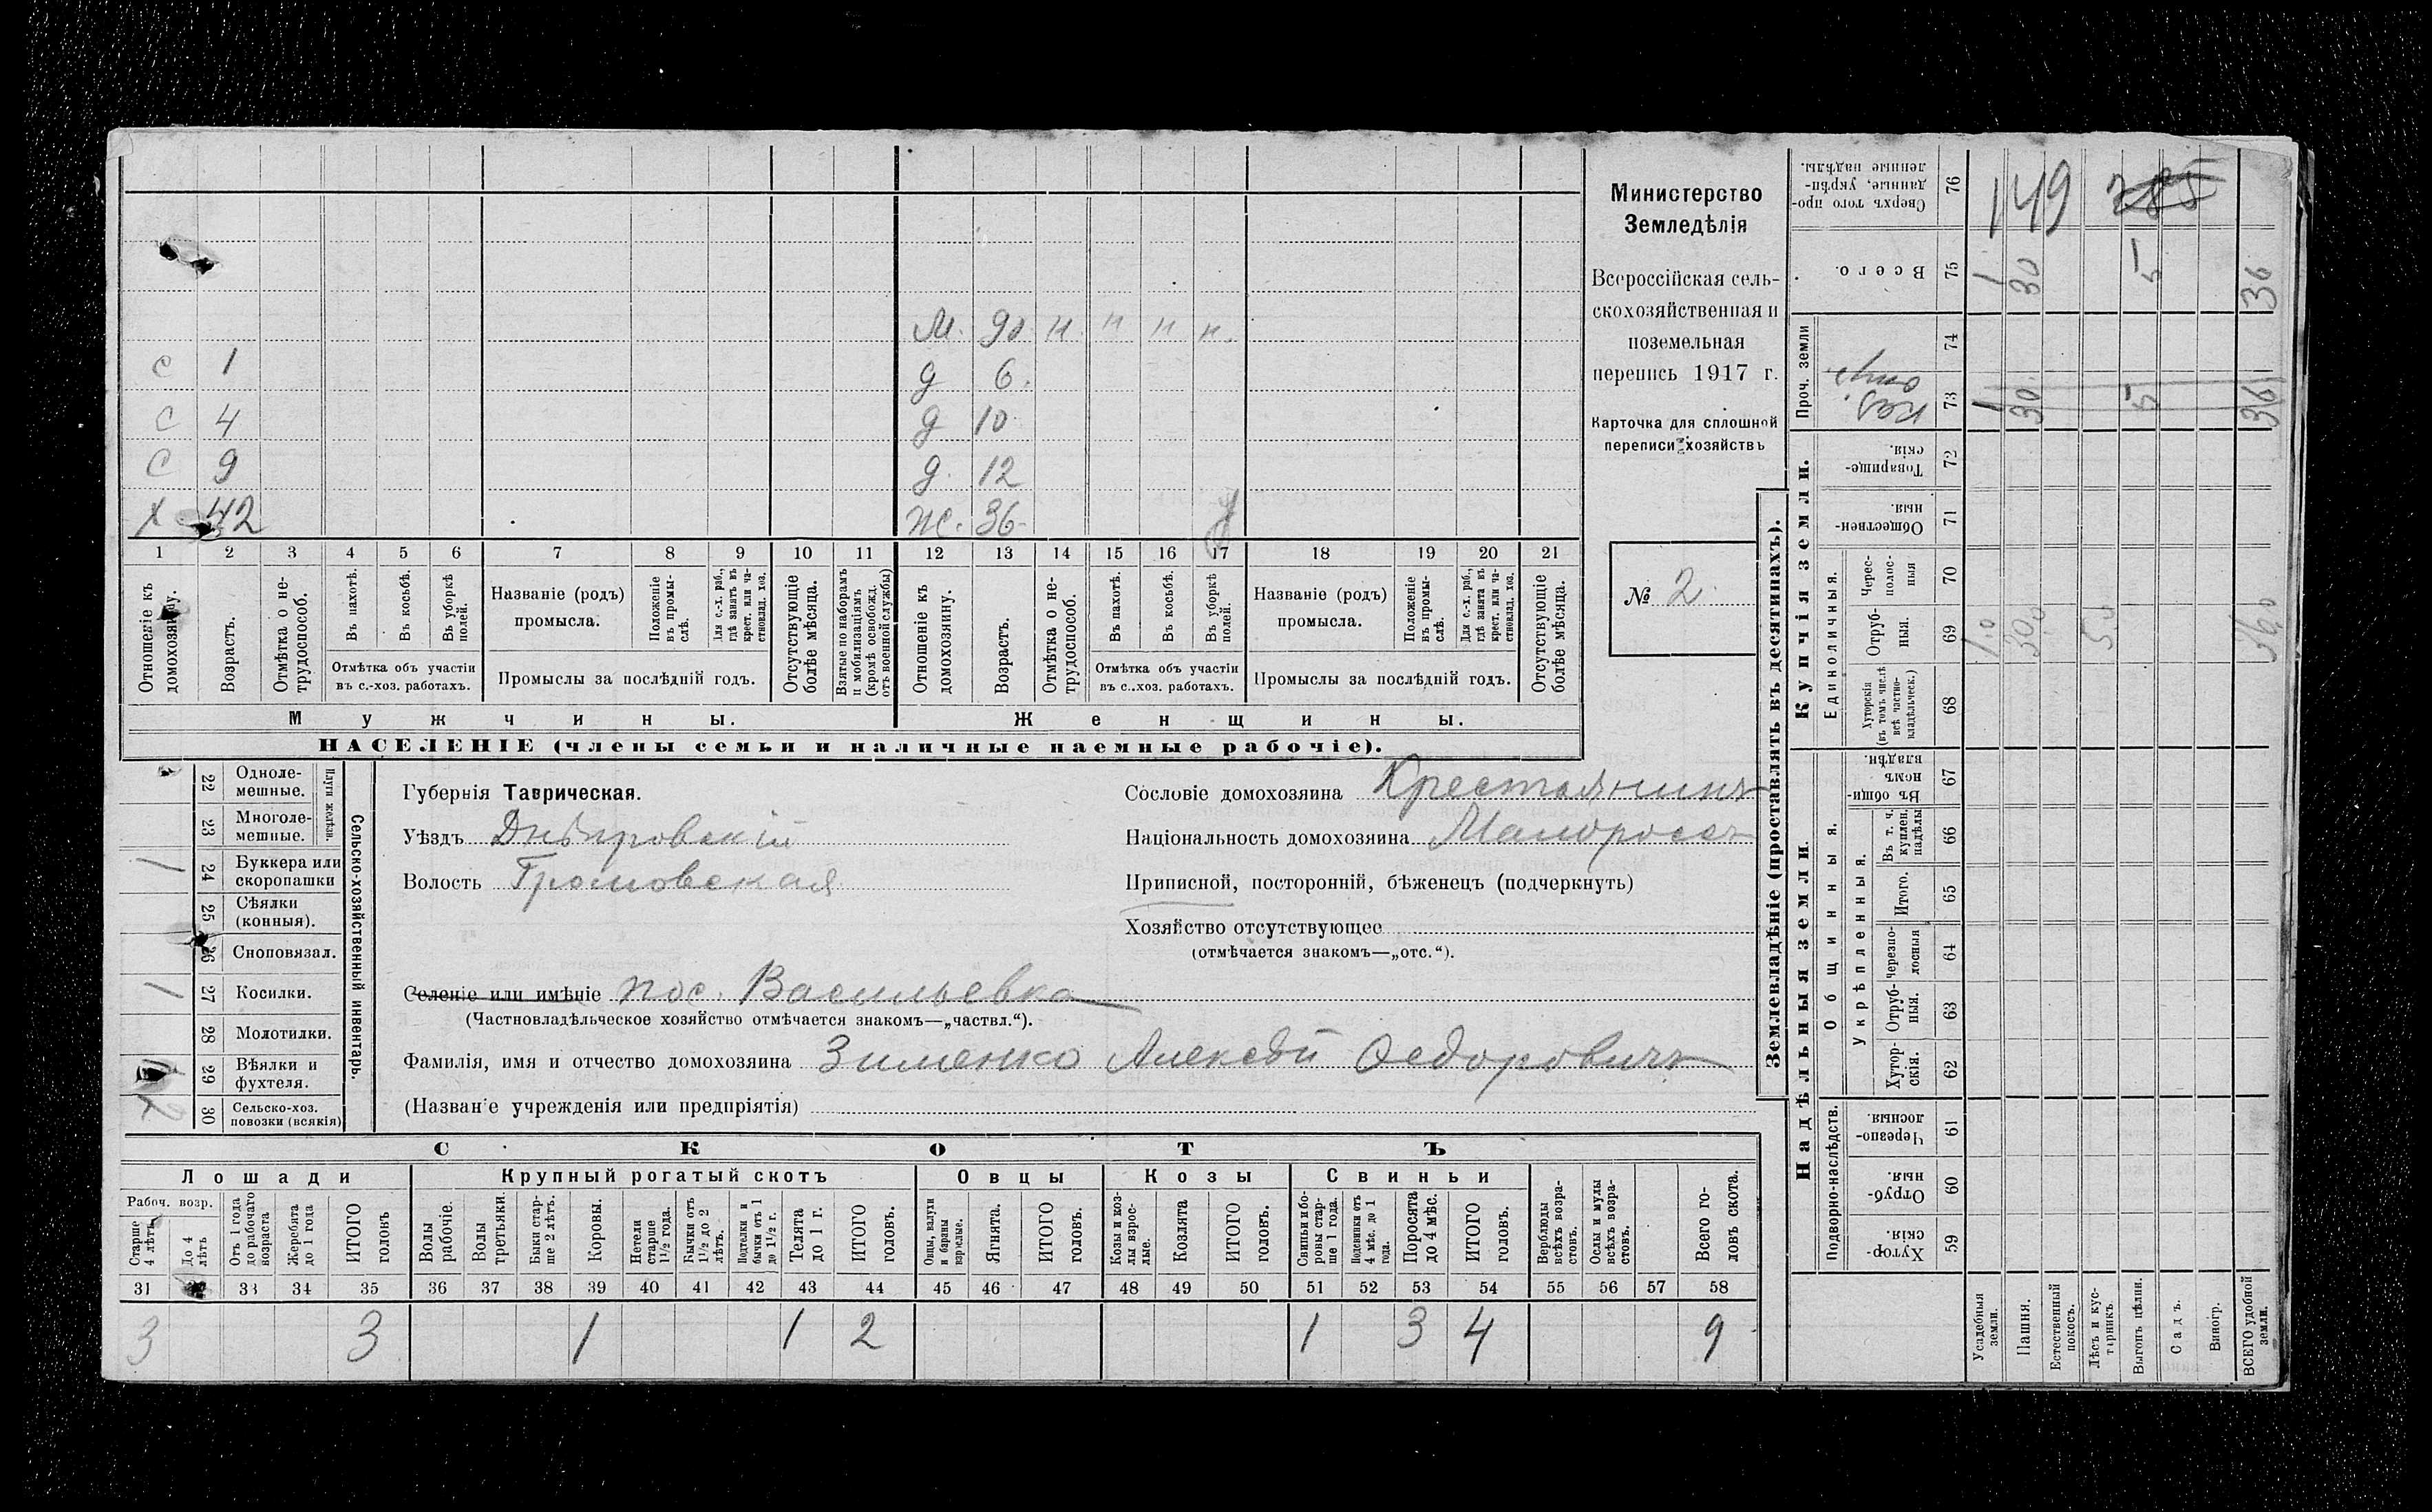 М. 90 н н н н.
с 1 д 6.
с 4 д 10
с 9 д. 12
х 42 ж. 36
1 2 3 4 5 6 7 8 9 10 11 12 13 14 15 16 17 18 19 20 21
Отношеніе къ домохозяину.
Возрастъ.
Отмѣтка о нетрудоспособ.
Въ пахотѣ.
Въ косьбѣ.
Въ уборкѣ полей.
Отмѣтка объ участіи
въ с.-хоз. работахъ.
Названіе (родъ)
промысла.
Положеніе въ промыслѣ.
Для с.-х. раб., гдѣ занятъ въ крест. или частновлад. хоз.
Промыслы за послѣдній годъ.
Отсутствующіе болѣе мѣсяца.
Взятые по наборамъ и мобилизаціямъ (кромѣ освобожд. отъ военной службы)
Отношеніе къ домохозяину.
Возрастъ.
Отмѣтка о нетрудоспособ.
Въ пахотѣ.
Въ косьбѣ.
Въ уборкѣ полей.
Отмѣтка объ участіи
въ с..хоз. работахъ.
Названіе (родъ)
промысла.
Положеніе въ промыслѣ.
Для с.-х. раб., гдѣ занята въ крест. или частновлад. хоз.
Промыслы за послѣдній годъ.
Отсутствующіе болѣе мѣсяца.
Мужчины. Женщины.
НАСЕЛЕНІЕ (члены семьи и наличные наемные рабочіе).
Министерство
Земледѣлія
Всероссійская сель-
скохозяйственная и
поземельная
перепись 1917 г.
Карточка для сплошной
переписи хозяйствъ
№ 2
Сельско-хозяйственный инвентарь.
Плуги желѣзн.
22 Одноле-
мешные.
23 Многоле-
мешные.
1 24 Буккера или
скоропашки
25 Сѣялки
(конныя).
26 Сноповязал.
1 27 Косилки.
28 Молотилки.
29 Вѣялки и
фухтеля.
2 30 Сельско-хоз.
повозки (всякія)
Губернія Таврическая.
Уѣздъ Днѣпровскій
Волость Громовская
Селеніе или имѣніе пос. Васильевка
(Частновладѣльческое хозяйство отмѣчается знакомъ—„частвл.“).
Фамилія, имя и отчество домохозяина Зименко Алексѣй Ѳедоровичъ
(Названіе учрежденія или предпріятія)
Сословіе домохозяина Крестьянинъ
Національность домохозяина Малороссъ
Приписной, посторонній, бѣженецъ (подчеркнуть)
Хозяйство отсутствующее
(отмѣчается знакомъ—„отс.“).
СКОТЪ
Лошади Крупный рогатый скотъ Овцы Козы Свиньи
Рабоч. возр.
Старше 4 лѣтъ
До 4 лѣтъ
Отъ 1 года до рабочаго возраста
Жеребята до 1 года
ИТОГО головъ
Волы рабочіе.
Волы третьяки.
Быки старше 2 лѣтъ.
Коровы.
Нетели старше 1½ года.
Бычки отъ 1½ до 2 лѣтъ.
Подтелки и бычки отъ 1 до 1½ г.
Телята до 1 г.
ИТОГО головъ.
Овцы, валухи и бараны взрослые.
Ягнята.
ИТОГО головъ.
Козы и козлы взрослые.
Козлята
ИТОГО головъ.
Свиньи и боровы старше 1 года.
Подсвинки отъ 4 мѣс. до 1 года.
Поросята до 4 мѣс.
ИТОГО головъ.
Верблюды всѣхъ возрастовъ.
Ослы и мулы всѣхъ возрастовъ.
Всего головъ скота.
31 32 33 34 35 36 37 38 39 40 41 42 43 44 45 46 47 48 49 50 51 52 53 54 55 56 57 58
3 3 1 1 2 1 3 4 9
Землевладѣніе (проставлять въ десятинахъ).
Надѣльныя земли.
Купчія земли.
Проч. земли
Подворно-наслѣдств.
Общинныя.
Укрѣпленныя.
Единоличныя.
Сверхъ того проданные, укрѣпленные надѣлы. 76 149 285
Всего. 75 1 30 5 36
74
73 1 30 5 36
Товарищескія. 72
Общественныя. 71
Чересполосныя 70
Отрубныя. 69 1.0 30.0 5.0 36.0
Хуторскія (въ томъ числѣ всѣ частновладѣльческ.) 68
Въ общинномъ владѣн. 67
Въ т. ч. куплен. надѣлы 66
Итого. 65
Черезполосныя 64
Отрубныя. 63
Хуторскія. 62
Черезполосныя 61
Отрубныя. 60
Хуторскія. 59
Усадебныя земли.
Пашня.
Естественный покосъ.
Лѣсъ и кустарникъ.
Выгонъ цѣлин.
Садъ.
Виногр.
ВСЕГО удобной земли.